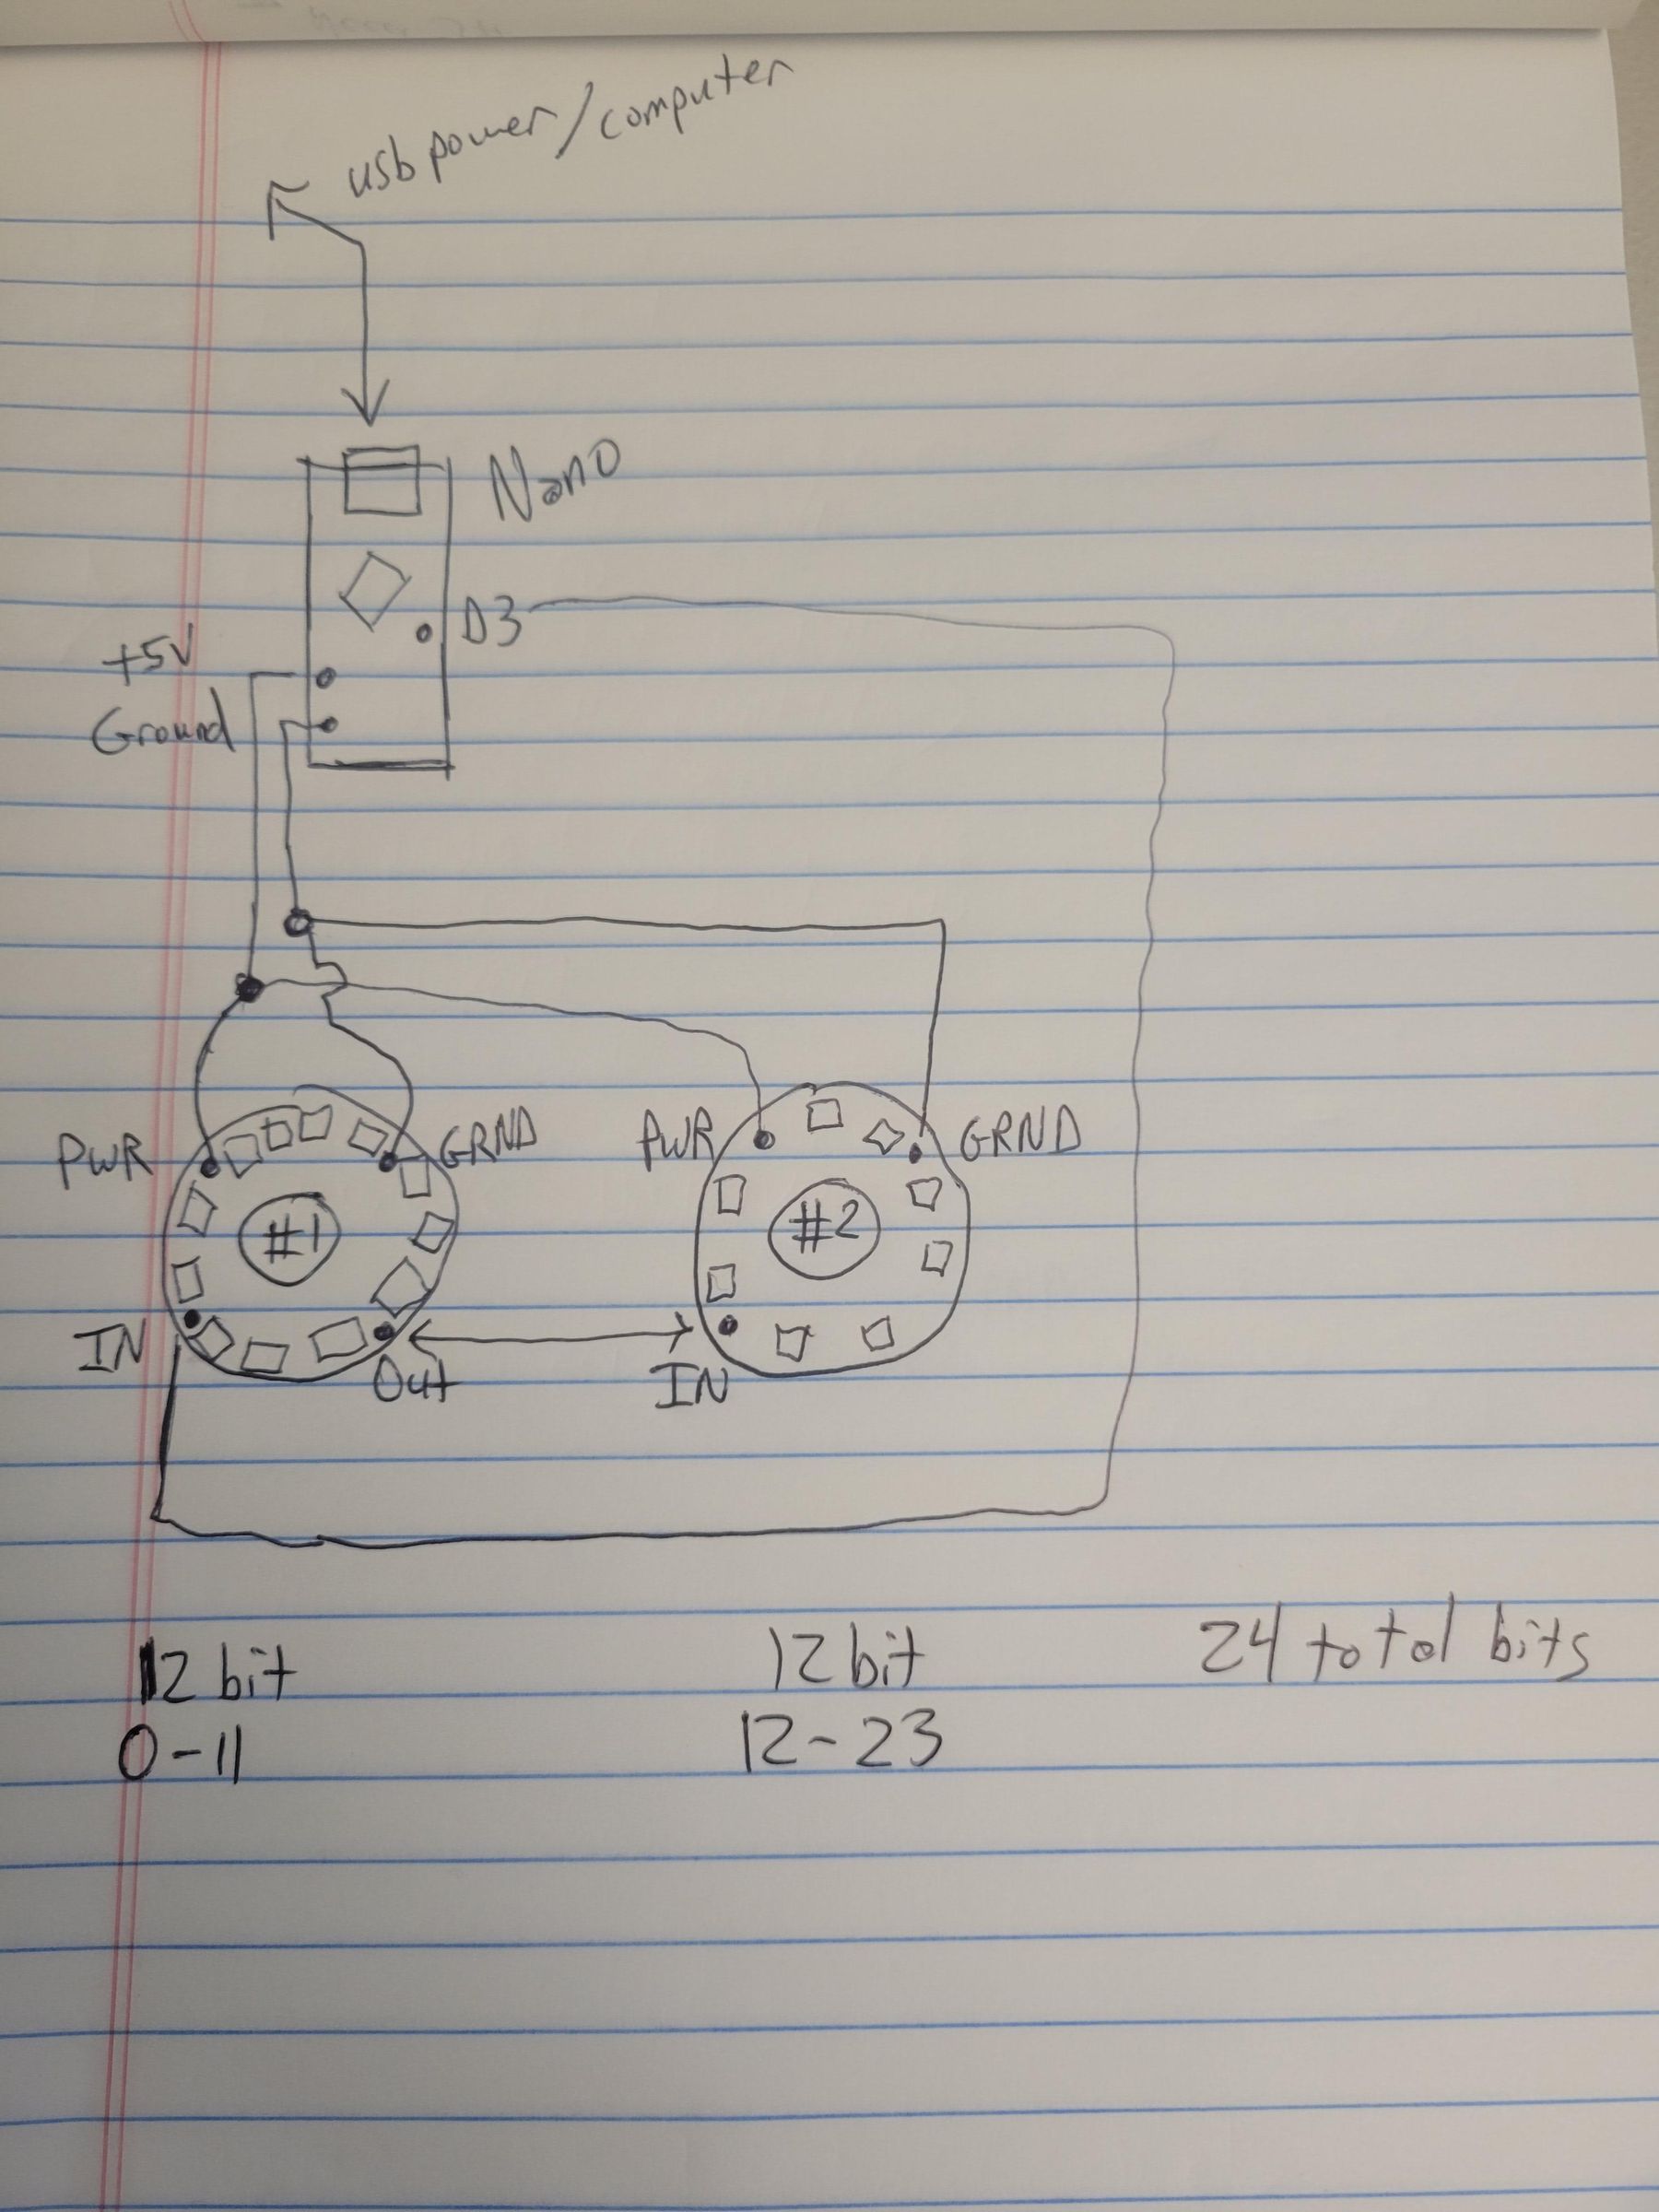 usb power/computer
Nano
D3
+5V
Ground
PWR
GRND
PWR
GRND
#1
#2
IN
Out
IN
12 bit
12 bit
24 total bits
0-11
12-23